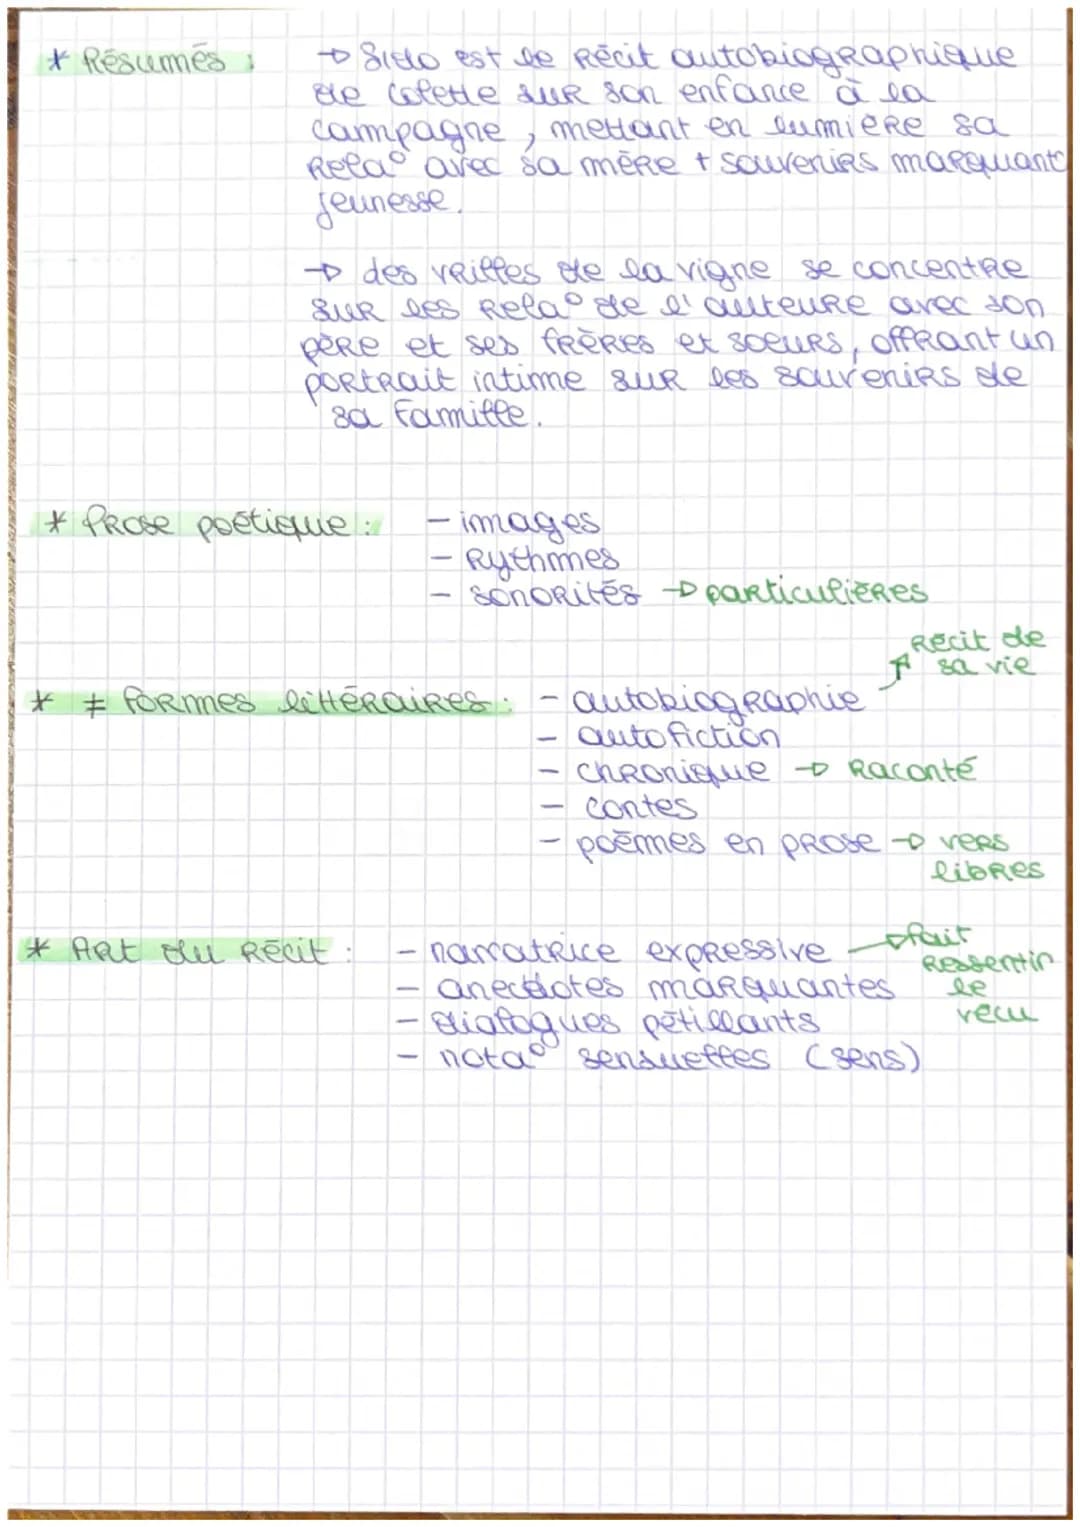 * Résumés :
→ Sido est le récit autobiographique
de Colette sur son enfance à la
campagne, mettant en lumière sa
rela° avec sa mère + souvenirs marquant
jeunesse.
→ des vrilles de la vigne se concentre
sur les rela° de l'auteure avec son
père et ses frères et soeurs, offrant un
portrait intime sur les souvenirs de
sa famille.
* Prose poétique :
- images
- Rythmes
- sonorités → particulières
* ≠ formes littéraires :
- autobiographie ↗ Récit de sa vie
- autofiction
- chronique → Raconté
- contes
- poèmes en prose → vers
libres
* Art du Récit :
- narratrice expressive → fait
ressentir
le
vécu
- anecdotes marquantes
- dialogues pétillants
- nota° sensuelles (sens)